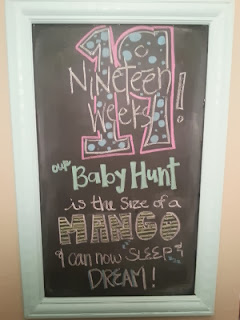 19
Nineteen
Weeks!
our Baby Hunt
is the size of a
MANGO
& can now SLEEP &
DREAM!